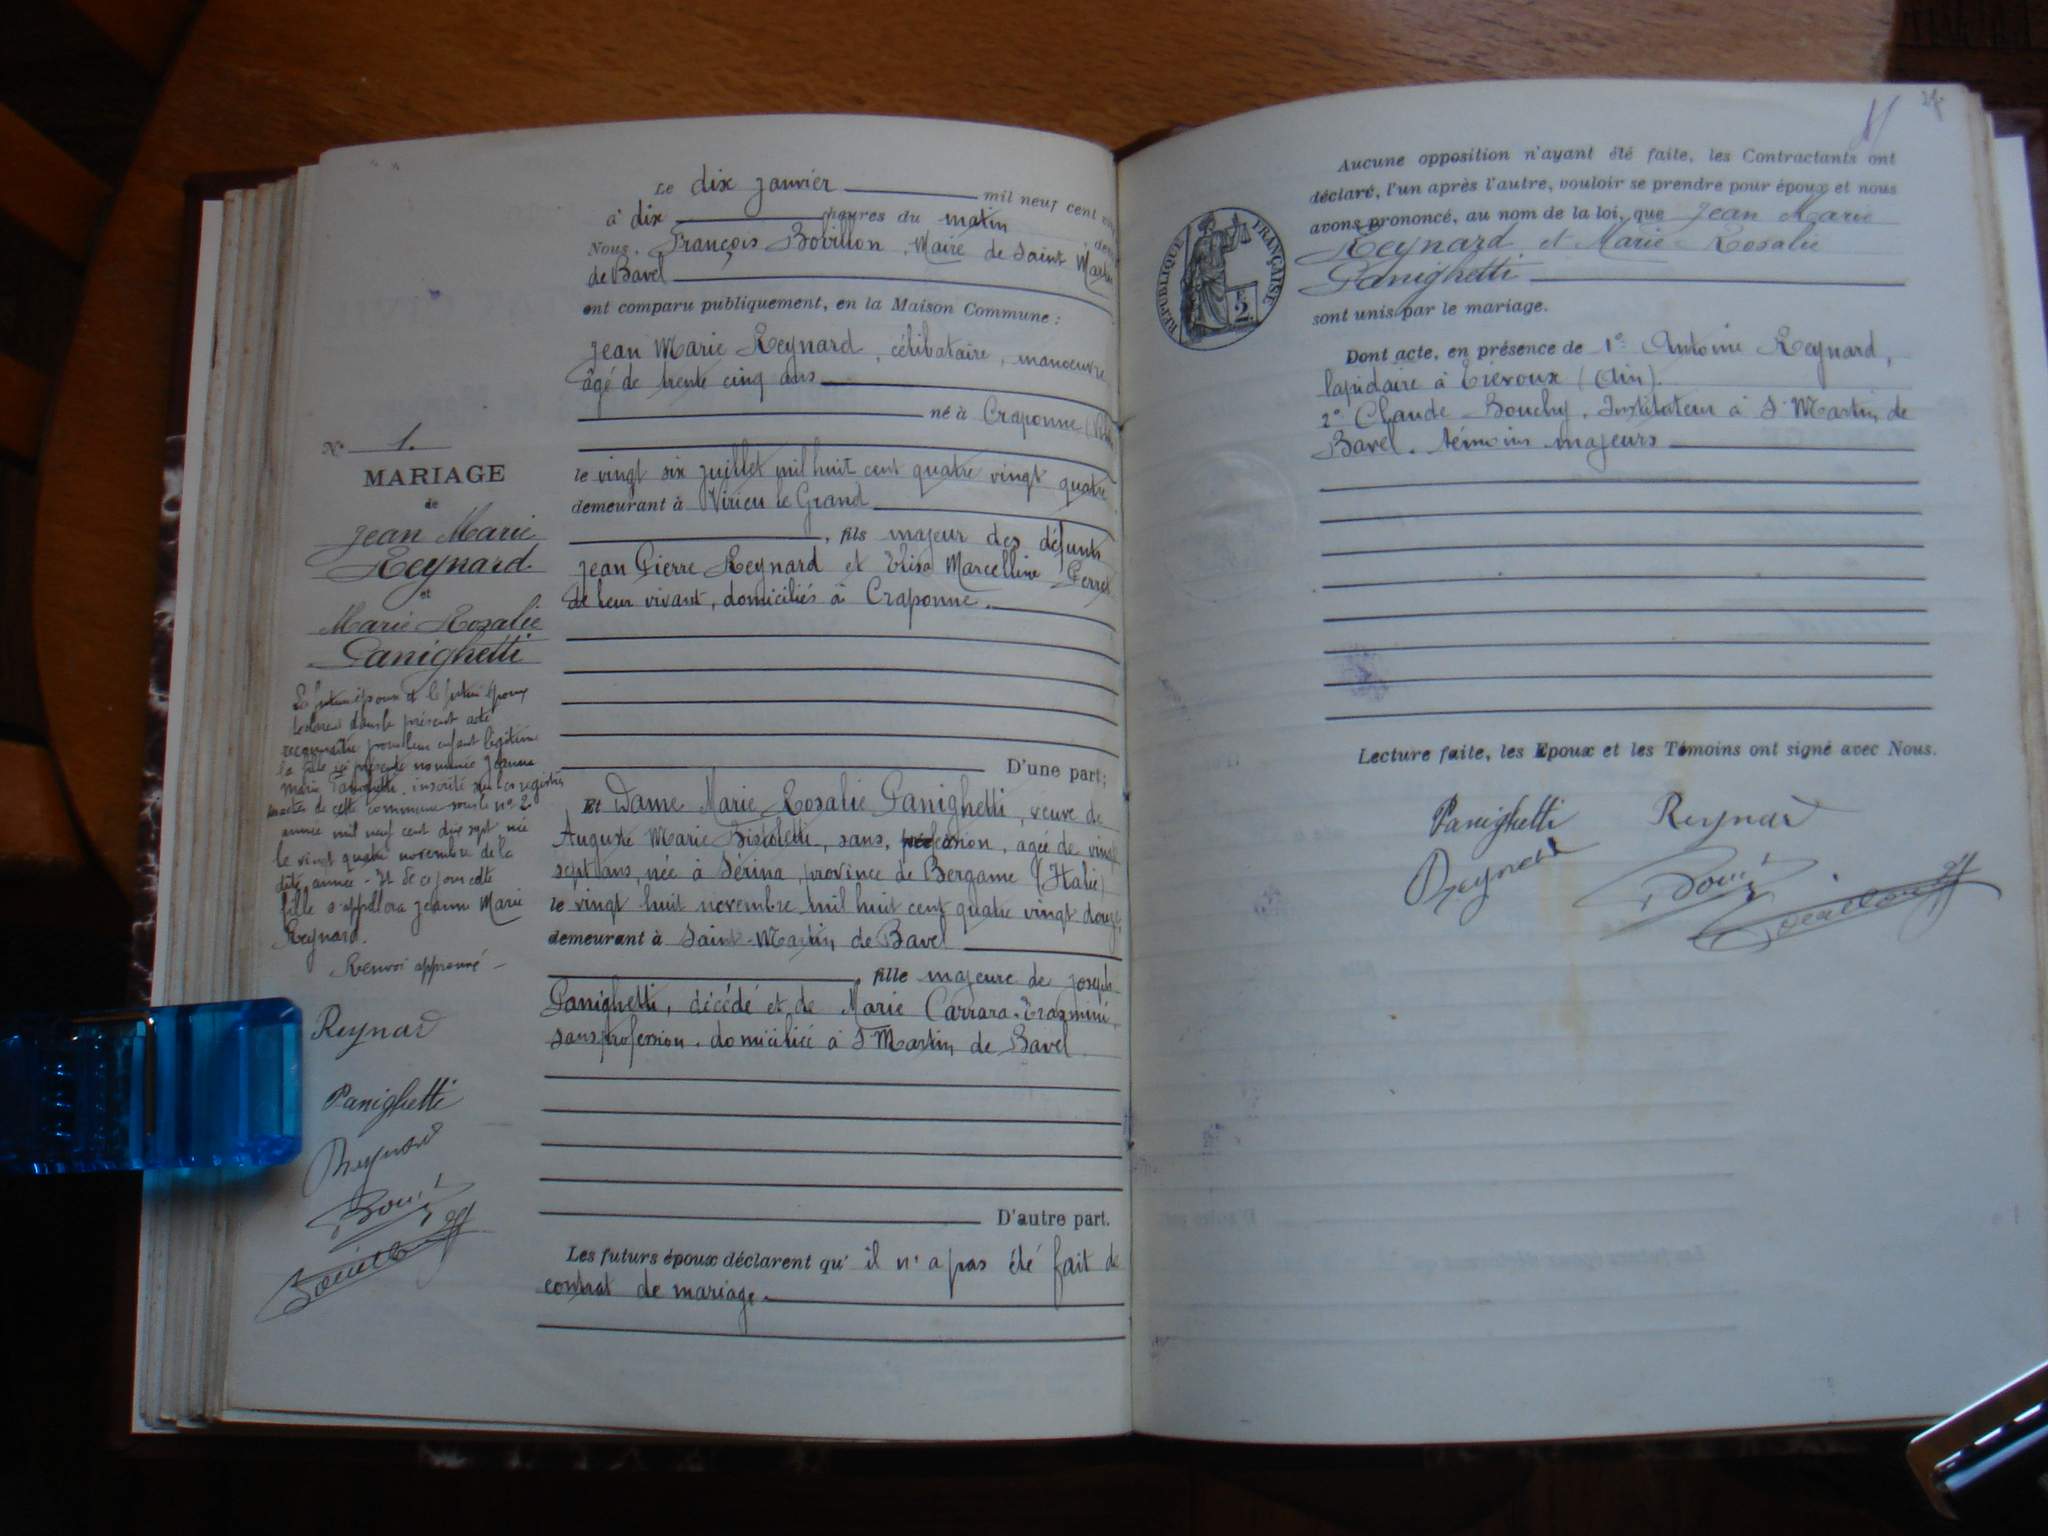 Le dix janvier mil neuf cent
à dix heures du matin
Nous, François Bovillon, Maire de Saint Martin
de Bavel
ont comparu publiquement, en la Maison Commune :
Jean Marie Reynard, célibataire, manoeuvre
âgé de trente cinq ans
né à Craponne
le vingt six juillet mil huit cent quatre vingt quatre
demeurant à Virieu le Grand
, fils majeur des défunts
Jean Pierre Reynard et Elisa Marcelline Perret
de leur vivant, domiciliés à Craponne.
D'une part;
Et Dame Marie Rosalie Panighetti, veuve de
Auguste Marie Bistoletti, sans, profession, agée de vingt
sept ans, née à Sérina, province de Bergame (Italie)
le vingt huit novembre mil huit cent quatre vingt douze,
demeurant à Saint-Martin de Bavel
, fille majeure de Joseph
Panighetti, décédé et de Marie Carrara-
sans profession, domiciliée à St Martin de Bavel.
D'autre part.
Les futurs époux déclarent qu' il n'a pas été fait de
contrat de mariage.
N° 1.
MARIAGE
de
Jean Marie
Reynard.
et
Marie Rosalie
Panighetti
époux et
dans le présent acte
reconnaître pour leur enfant légitime
la fille ici présente nommée Jeanne
Marie Panighetti, inscrite sur les registres
de cette commune sous le n° 2
année mil neuf cent dix sept née
le vingt quatre novembre de la
dite année - Et de ce jour cette
fille s'appellera Jeanne Marie
Reynard.
Renvoi approuvé -
Reynard
Panighetti
Reynard
Aucune opposition n'ayant été faite, les Contractants ont
déclaré, l'un après l'autre, vouloir se prendre pour époux et nous
avons prononcé, au nom de la loi, que Jean Marie
Reynard et Marie-Rosalie
Panighetti
sont unis par le mariage.
RÉPUBLIQUE FRANÇAISE
2
Dont acte, en présence de 1° Antoine Reynard,
lapidaire à Trévoux (Ain).
2° Claude Bouchy, Instituteur à St Martin de
Bavel. témoins majeurs
Lecture faite, les Epoux et les Témoins ont signé avec Nous.
Panighetti Reynard
Reynard